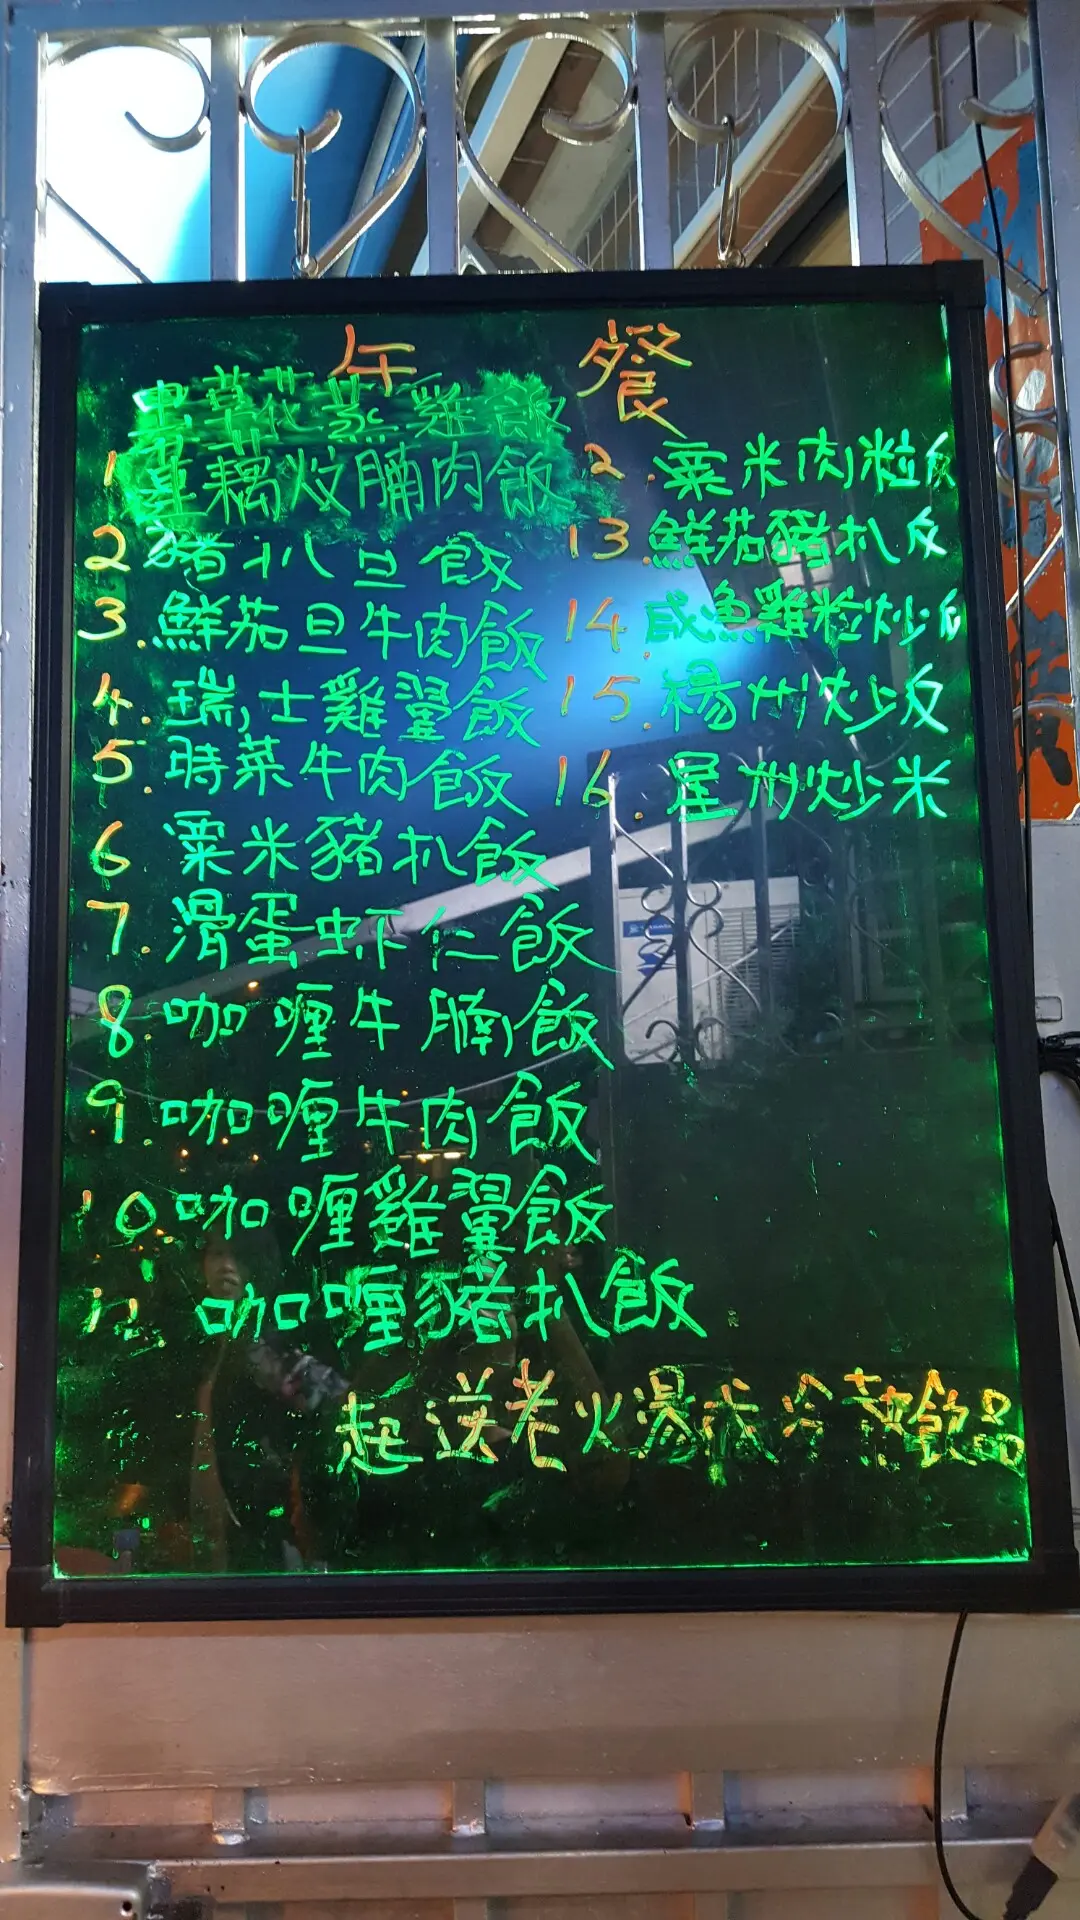 午 餐
虫草花蒸雞飯
1 蓮藕炆腩肉飯
2 豬扒旦飯
3. 鮮茄旦牛肉飯
4. 瑞士雞翼飯
5. 時菜牛肉飯
6 粟米豬扒飯
7. 滑蛋虾仁飯
8. 咖喱牛腩飯
9. 咖喱牛肉飯
10. 咖喱雞翼飯
11. 咖喱豬扒飯
2. 粟米肉粒飯
13. 鮮茄豬扒饭
14. 咸魚雞粒炒飯
15. 楊州炒饭
16. 星州炒米
起送老火湯或冷热飲品